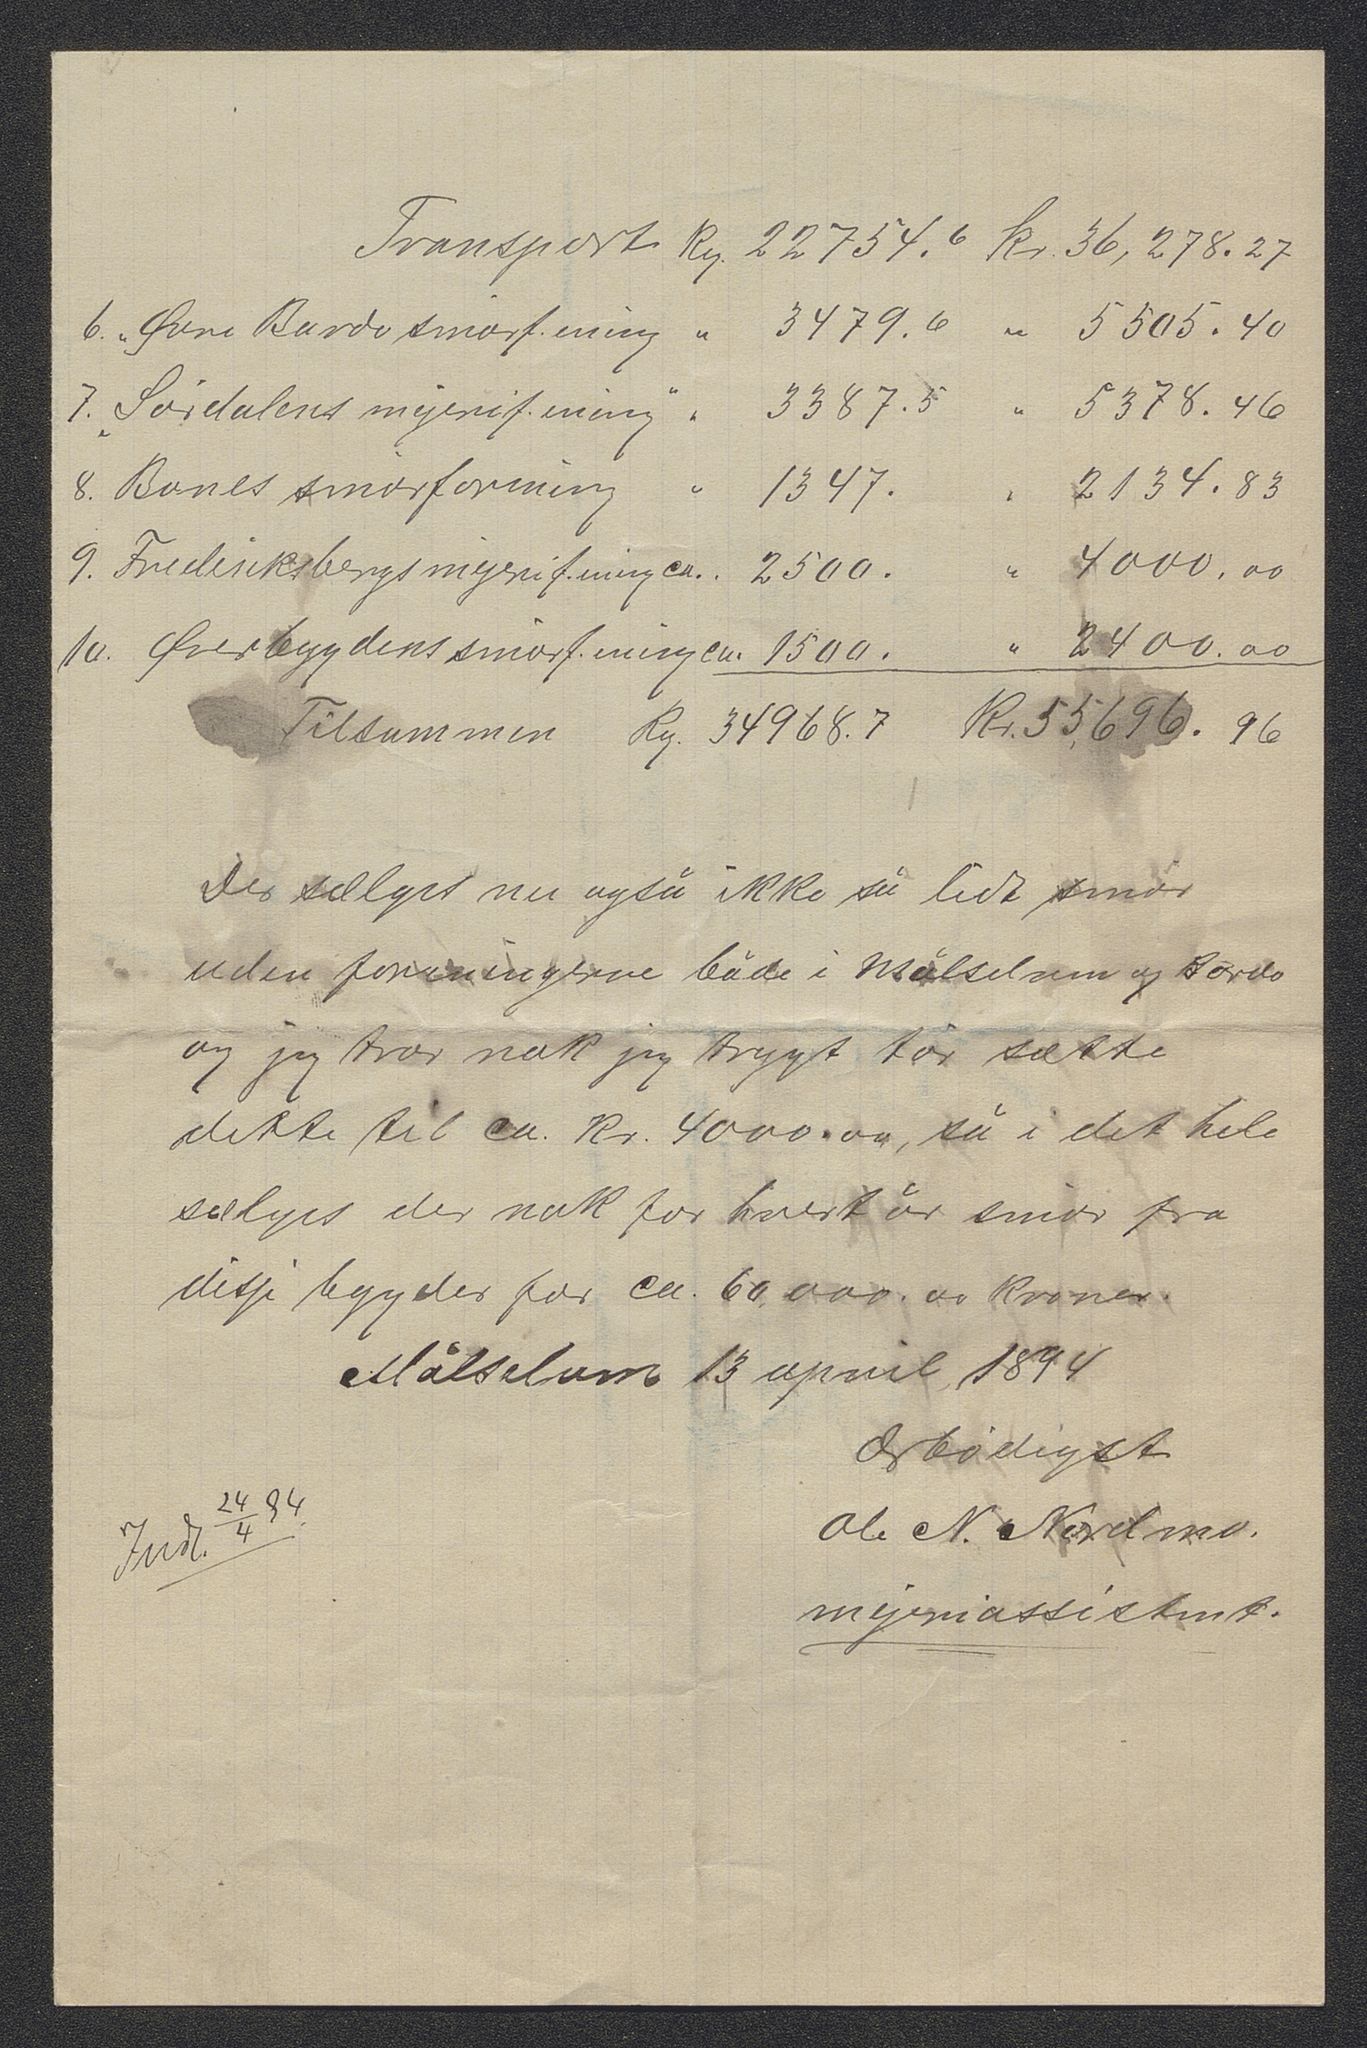 Transport Kg. 22754.6 Kr. 36,278.27
6. „Øvre Bardo smörf.ening „ 3479.6 „ 5505.40
7. „Sördalens mejerif.ening" „ 3387.5 „ 5378.46
8. Bones smörforening „ 1347. „ 2134.83
9. Frederiksbergs mejerif.ening ca. . 2500. „ 4000.00
10. Øverbygdens smörf.ening ca. 1500. „ 2400.00
Tilsammen Kg. 34968.7 Kr. 55,696.96
Der sælges nu også ikke så lidt smör
uden foreningerne både i Målselven og Bardo
og jeg tror nok jeg trygt tör sætte
dette til ca. Kr. 4000.00, så i det hele
sælges der nok for hvert år smör fra
disse bygder for ca. 60,000.00 Kroner.
Målselven 13 april 1894
Ærbödigst
Ole N. Nordmo.
mejeriassistent.
Indl. 24/4 94.